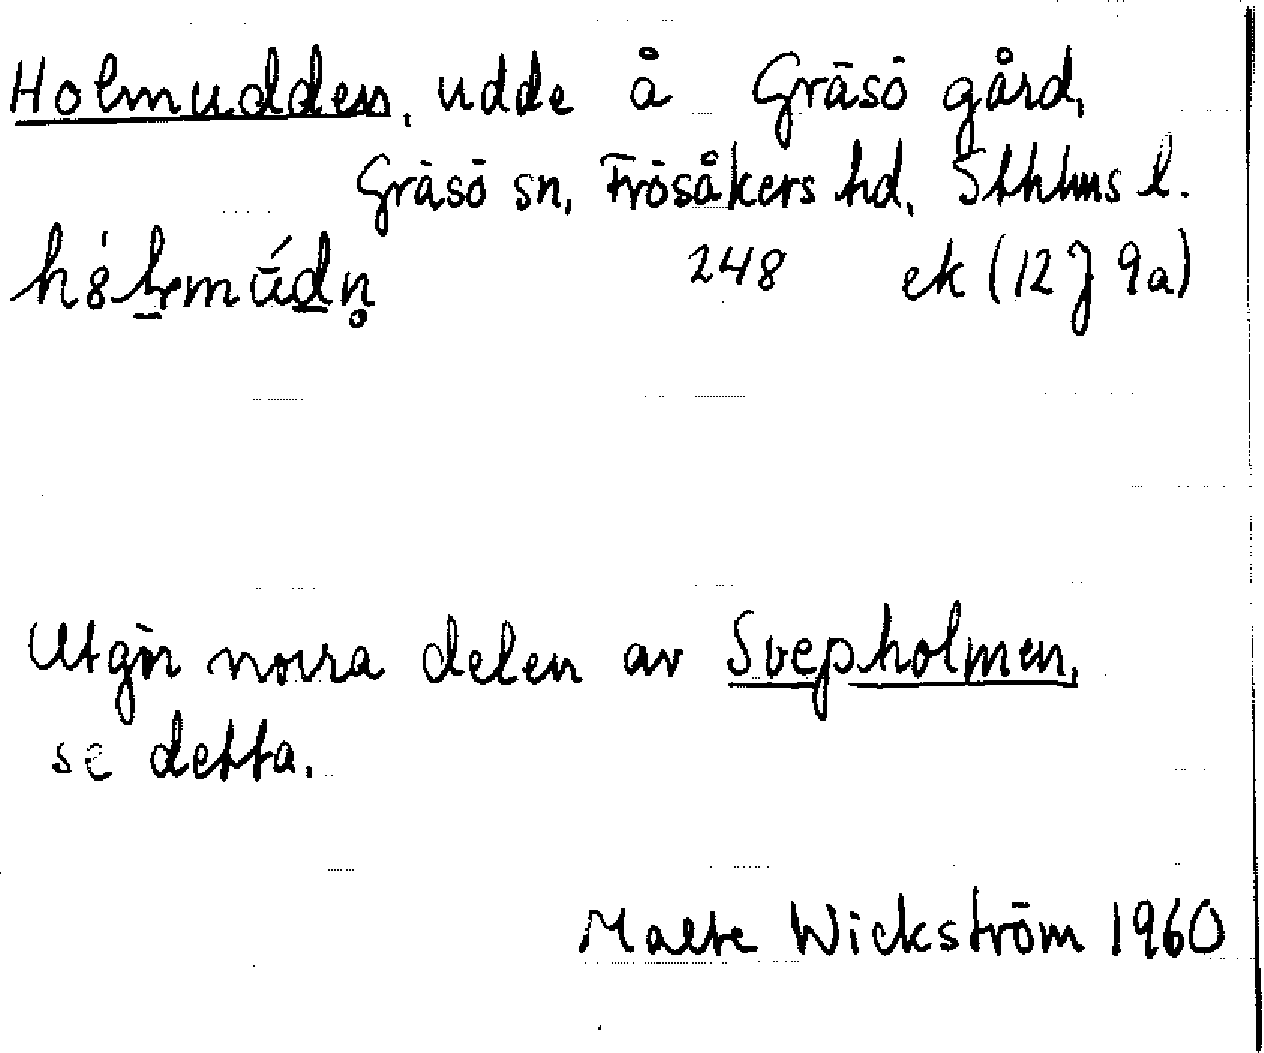 Holmudden, udde å Gräsö gård,
Gräsö sn, Frösåkers hd, Sthlms l.
248 ek (12 J 9a)
Utgör norra delen av Svepholmen,
se detta.
Malte Wickström 1960